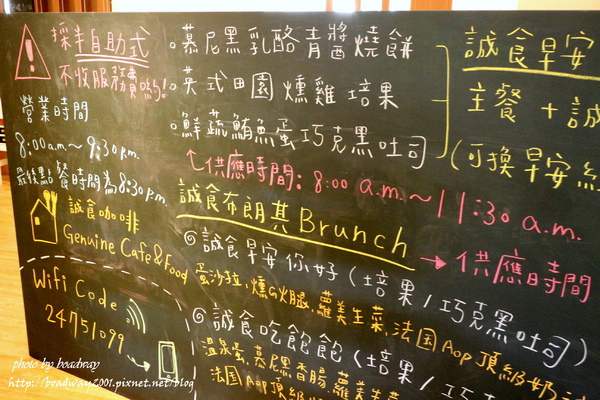 採半自助式
不收服務費喲!
營業時間
8:00a.m.~9:30p.m.
最後點餐時間為8:30p.m.
誠食咖啡
Genuine Cafe & Food
Wifi Code
24751099
。慕尼黑乳酪青醬燒餅
。英式田園燻雞培果
。鮮蔬鮪魚蛋巧克黑吐司
供應時間: 8:00 a.m.~11:30 a.m.
誠食早安
主餐 + 誠
(可換早安
誠食布朗其Brunch
供應時間
◎誠食早安你好(培果/巧克黑吐司)
蛋沙拉,燻の火腿,蘿美生菜,法国Aop頂級奶
◎誠食吃飽飽(培果/巧
温泉蛋,慕尼黑香腸,蘿美生菜
法国Aop頂級
photo by boadway
http://boadway2001.pixnet.net/blog